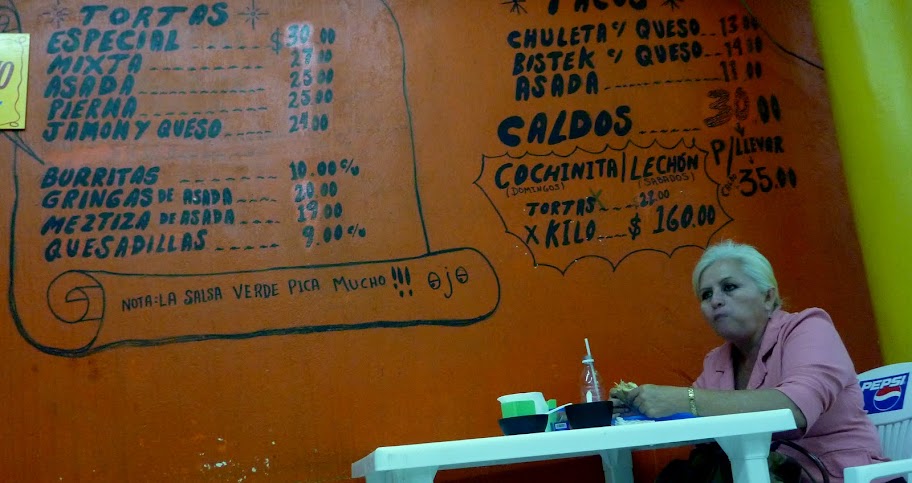 TORTAS
ESPECIAL $30.00
MIXTA 27.00
ASADA 25.00
PIERNA 25.00
JAMON Y QUESO 24.00
BURRITAS 10.00 c/u
GRINGAS DE ASADA 20.00
MEZTIZA DE ASADA 19.00
QUESADILLAS 9.00 c/u
NOTA: LA SALSA VERDE PICA MUCHO !!! OJO
TACOS
CHULETA c/ QUESO 13.00
BISTEK c/ QUESO 14.00
ASADA 11.00
CALDOS 30.00
P/LLEVAR
35.00
COCHINITA / LECHÓN
(DOMINGOS) (SABADOS)
TORTAS 22.00
X KILO $160.00
PEPSI